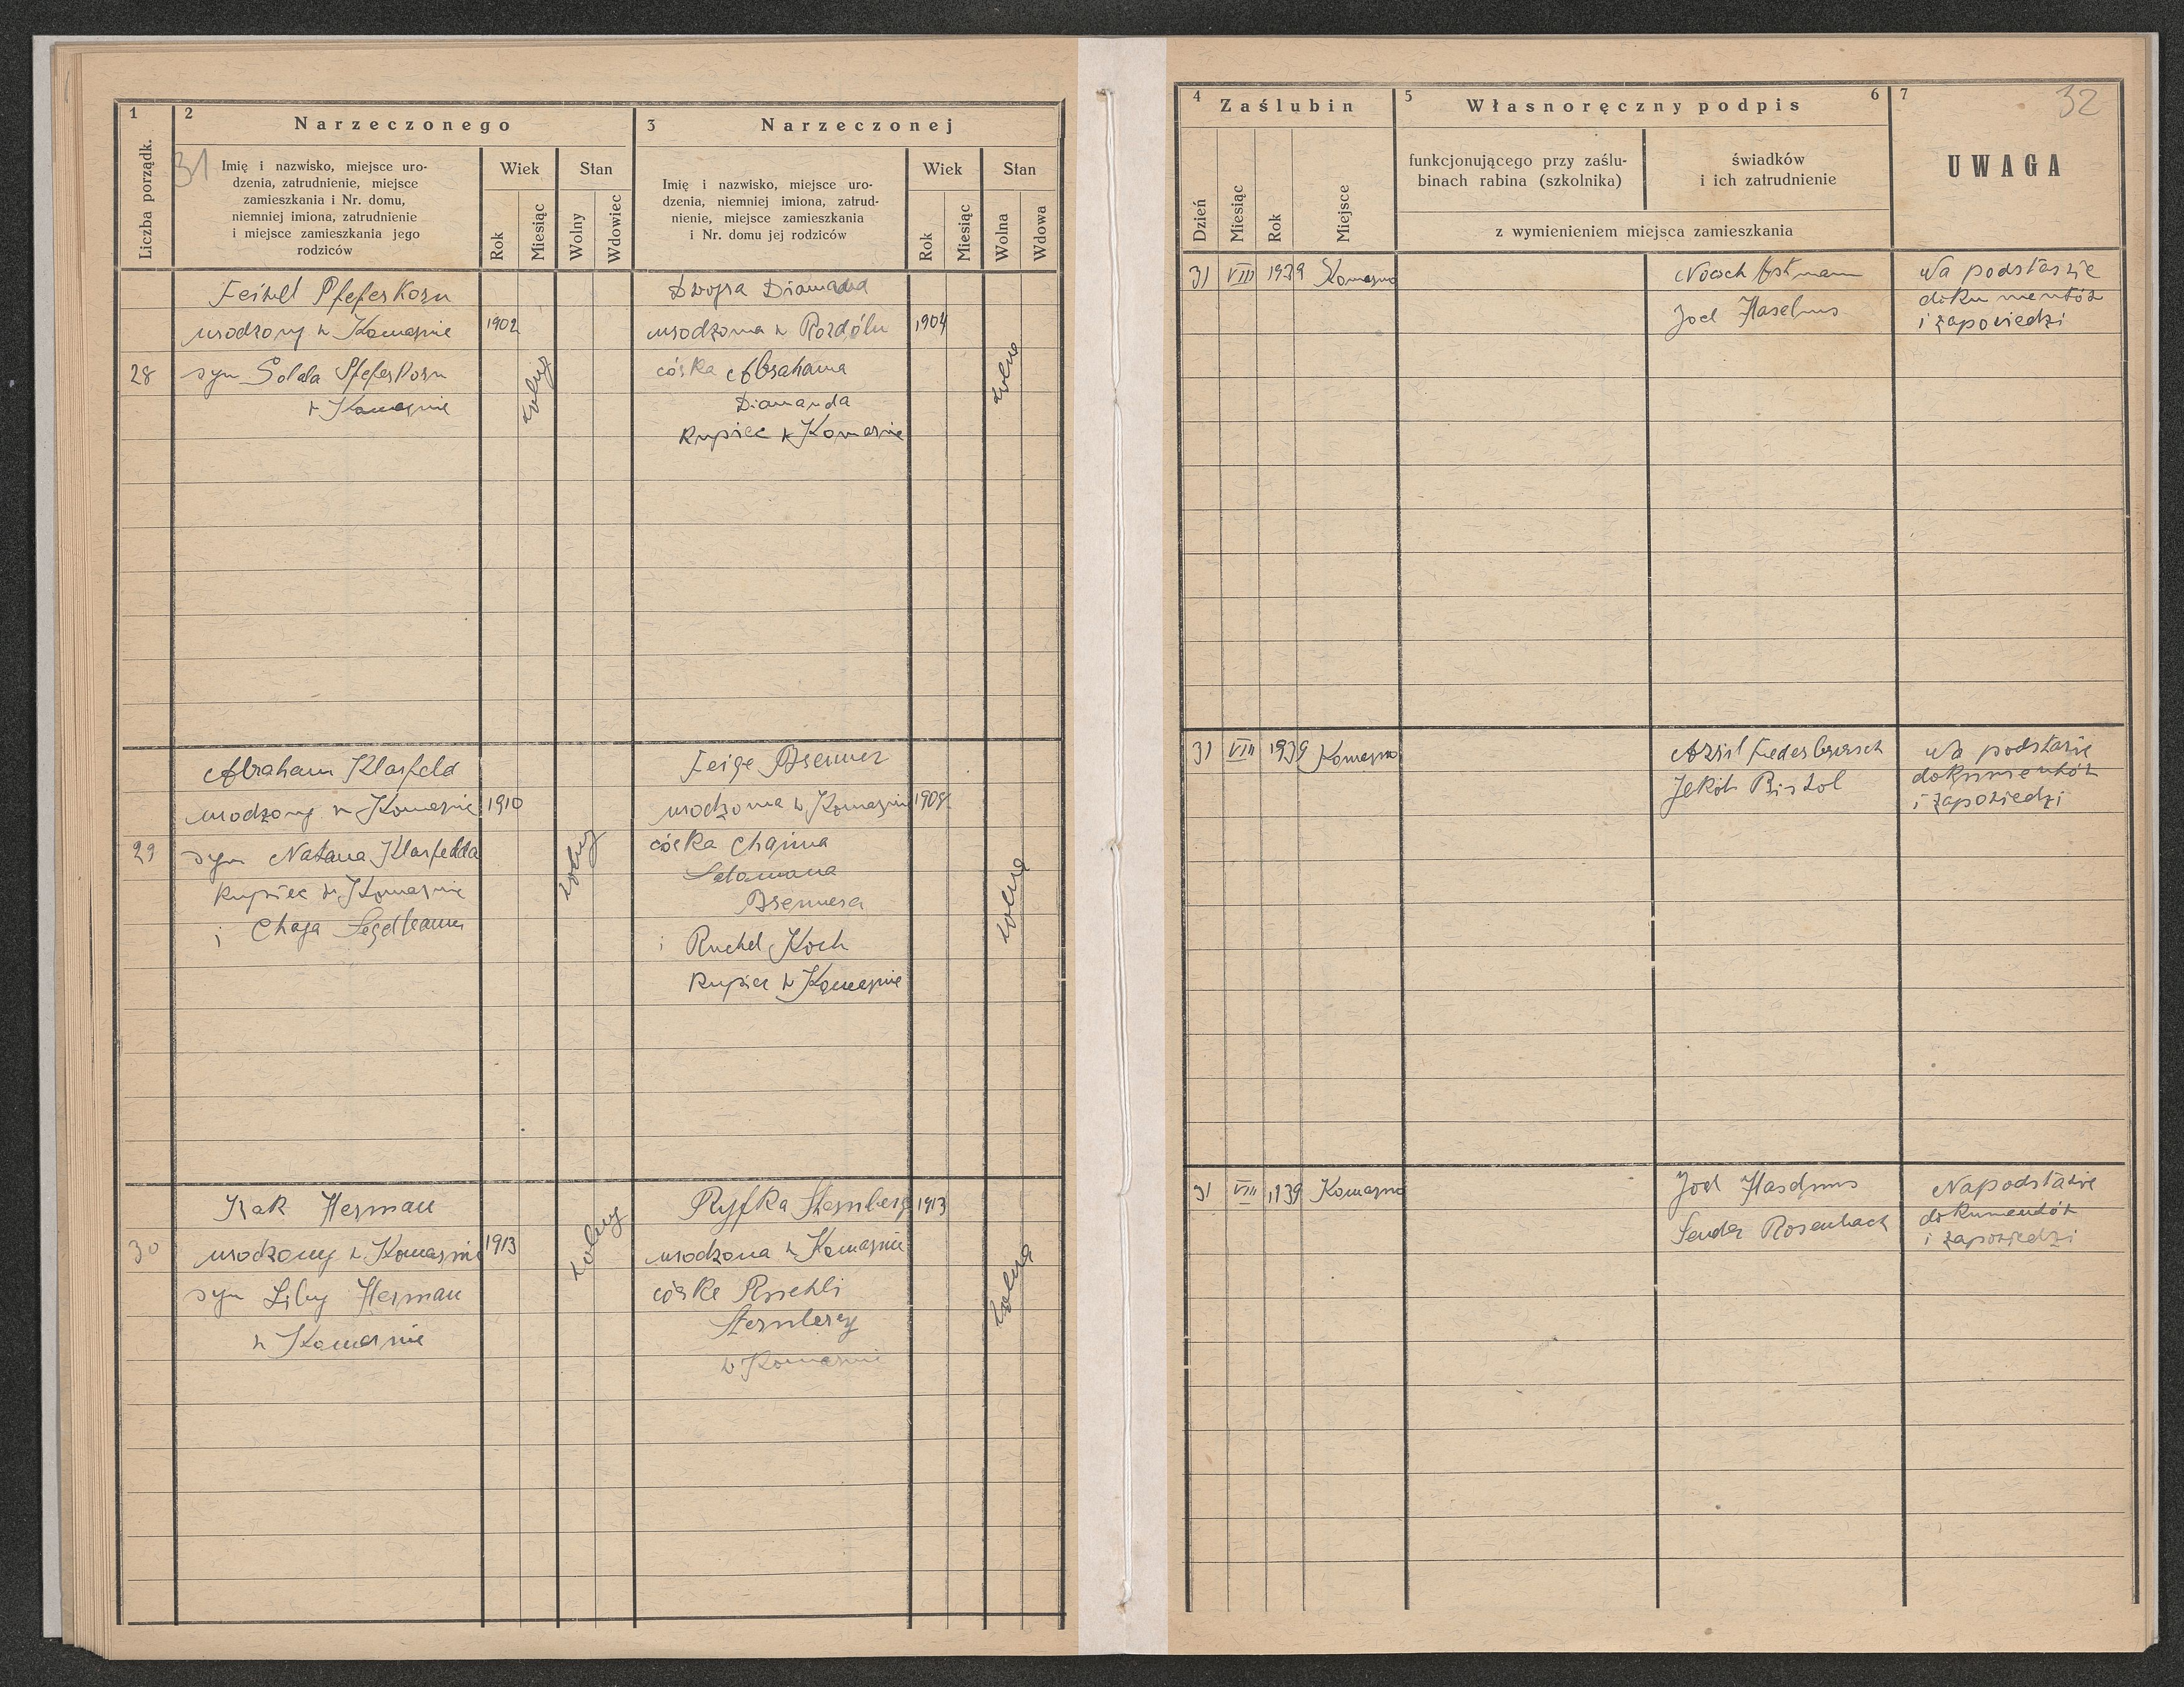 1
Liczba porządk.
2
Narzeczonego
31
Imię i nazwisko, miejsce uro-
dzenia, zatrudnienie, miejsce
zamieszkania i Nr. domu,
niemniej imiona, zatrudnienie
i miejsce zamieszkania jego
rodziców
Wiek
Rok
Miesiąc
Stan
Wolny
Wdowiec
3
Narzeczonej
Imię i nazwisko, miejsce uro-
dzenia, niemniej imiona, zatrud-
nienie, miejsce zamieszkania
i Nr. domu jej rodziców
Wiek
Rok
Miesiąc
Stan
Wolna
Wdowa
4
Zaślubin
Dzień
Miesiąc
Rok
Miejsce
5
Własnoręczny podpis
6
funkcjonującego przy zaślu-
binach rabina (szkolnika)
świadków
i ich zatrudnienie
z wymienieniem miejsca zamieszkania
7
32
UWAGA
28
Pfeferkorn
urodzony w Komarnie
syn Pfeferkorn
w Komarnie
1902
wolny
Dwojra Diamand
urodzona w Rozdólu
córka Abrahama
Diamanda
Kupiec w Komarnie
1904
wolna
31 VIII 1939 Komarno
Joel
Na podstawie
dokumentów
i zapowiedzi
29
Abraham Klarfeld
urodzony w Komarnie
syn Natana Klarfelda
Kupiec w Komarnie
i Chaja
1910
wolny
Feige Brenner
urodzona w Komarnie
córka Chaima
Salamana
Brennera
i Ruchel Koch
Kupiec w Komarnie
wolna
31 VIII 1939 Komarno
Na podstawie
dokumentów
i zapowiedzi
30
Izak Herman
urodzony w Komarnie
syn Liby Herman
w Komarnie
1913
wolny
Ryfka Sternberg
urodzona w Komarnie
córka Ruchli
Sternberg
w Komarnie
1913
wolna
31 VIII 1939 Komarno
Joel
Sender Rosenbach
Na podstawie
dokumentów
i zapowiedzi